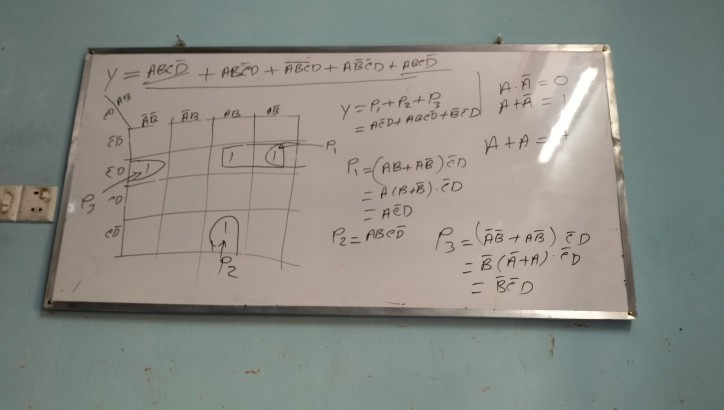 Y = ABCD̅ + ABC̅D + A̅B̅C̅D + AB̅C̅D + ABCD̅
AB
A̅B̅ A̅B AB AB̅
C̅D̅
C̅D 1 1 1
CD
CD̅ 1
P₁
P₃
P₂
Y = P₁ + P₂ + P₃
= AC̅D + ABCD̅ + B̅C̅D
P₁ = (AB + AB̅) C̅D
= A(B + B̅) · C̅D
= AC̅D
P₂ = ABCD̅
A · A̅ = 0
A + A̅ = 1
A + A =
P₃ = (A̅B̅ + AB̅) C̅D
= B̅(A̅ + A) · C̅D
= B̅C̅D